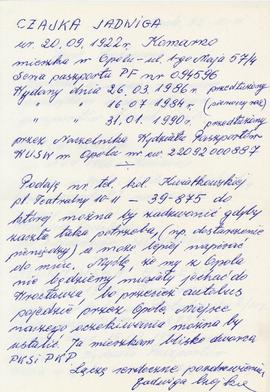 CZAJKA JADWIGA
ur. 20.09.1922r. Komarno
mieszka w Opolu – ul. 1-go Maja 57/4
Seria paszportu PF nr 094596
Wydany dnia 26.03.1986 r. przedłużony
" " 16.07.1984 r. (pierwszy raz)
" " 31.01.1990 r. przedłużony
przez Naczelnika Wydziału Paszportów
WUSW w Opolu nr ew 22092000887
Podaję nr tel. kol. Kwiatkowskiej
pl. Teatralny 10-11 – 39-875 do
której można by zadzwonić gdyby
zaszła taka potrzeba, (np. dostarczenie
pieniędzy) a może lepiej napisać
do mnie. Myślę, że my z Opola
nie będziemy musiały jechać do
Wrocławia, bo przecież autobus
pojedzie przez Opole. Miejsce
naszego oczekiwania można by
ustalić. Ja mieszkam blisko dworca
PKS i PKP
Łączę serdeczne pozdrowienia
Jadwiga